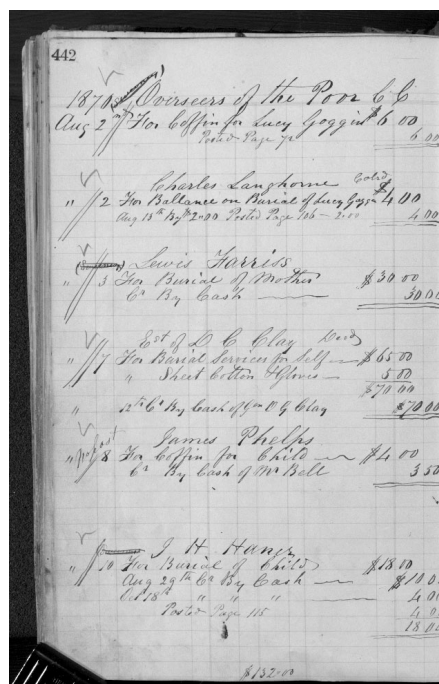 442
1870 Overseers of the Poor C C
Aug 2 For Coffin for Lucy Goggin $6 00
Posted Page 72 6 00
Charles Langhorne Cold
" 2 For Ballance on Burial of Lucy Goggin $4 00
Aug 13th By 2.00 Posted Page 106 - 2.00 4 00
Lewis Farriss
" 3 For Burial of Mother $30 00
Cr By Cash 30 00
Est of D C Clay Decd
" 7 For Burial Services for Self $65 00
" Sheet Cotton & Gloves 5 00
$70 00
" 12th Cr By Cash of D G Clay $70 00
James Phelps
" 8 For Coffin for Child $4 00
Cr By Cash of Mr Bell 3 50
J H Haner
" 10 For Burial of Child $18 00
Aug 29th Cr By Cash $10 0
Oct 18th " " " 4 00
Posted Page 115 4 00
18 00
$132.00